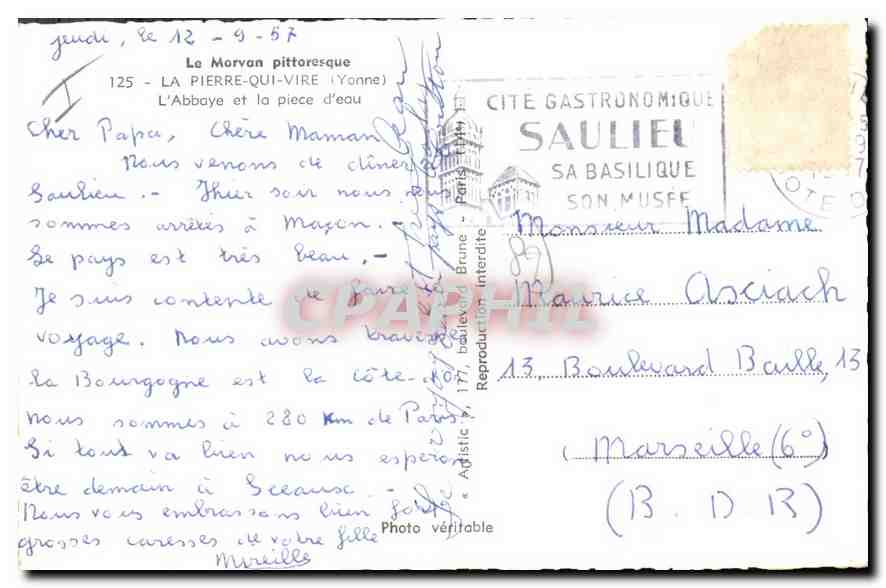 jeudi, le 12-9-57
Le Morvan pittoresque
125 - LA PIERRE-QUI-VIRE (Yonne)
L'Abbaye et la piece d'eau
I
Cher Papa, Chère Maman
Nous venons de dîner à
Saulieu. - Thier soir nous nous
sommes arrêtés à Maçon. -
Le pays est très beau. -
Je suis contente de faire ce
voyage. Nous avons traversé
la Bourgogne est la côte-d'or
nous sommes à 280 km de Paris.
Si tout va bien nous esperons
être demain à Sceausc. -
Nous vous embrassons bien fort
grosses caresses de votre fille
Mireille
voyage
pays
« Artistic », 177, boulevard Brune - Paris
Reproduction interdite
Photo véritable
CITÉ GASTRONOMIQUE
SAULIEU
SA BASILIQUE
SON MUSÉE
Monsieur Madame
Maurice Asciach
13, Boulevard Baille, 13
Marseille (6°)
(B. D. R)
CPAPHIL